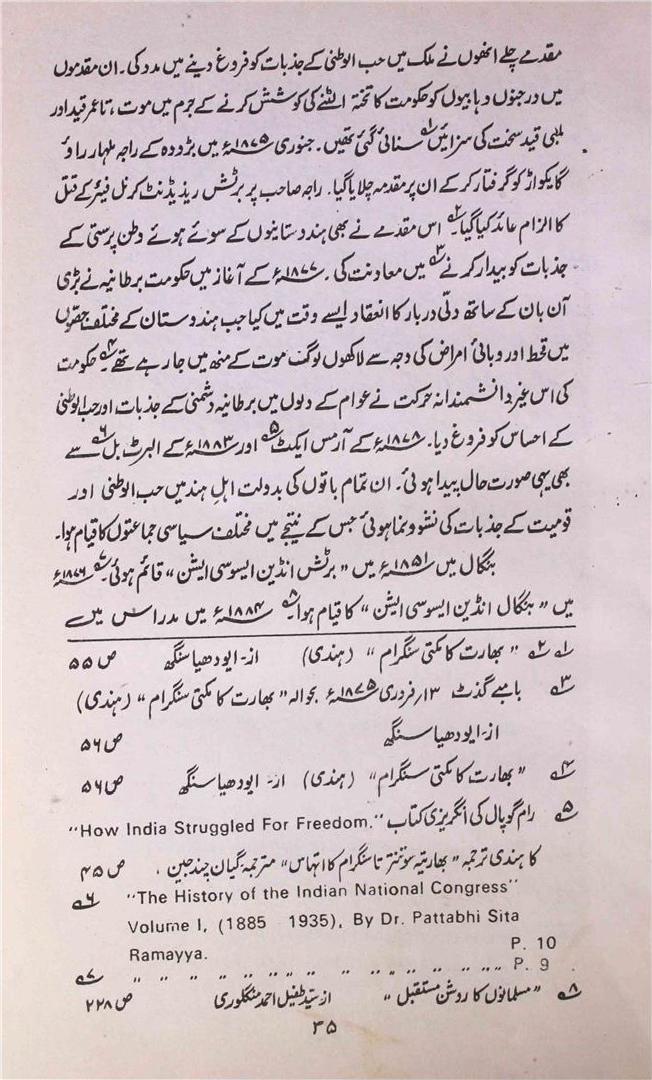 مقدمے چلے انھوں نے ملک میں حب الوطنی کے جذبات کو فروغ دینے میں مدد کی۔ ان مقدموں
میں درجنوں وہابیوں کو حکومت کا تختہ الٹنے کی کوشش کرنے کے جرم میں موت، تاعمر قید اور
لمبی قید سخت کی سزائیں۱؎ سنائی گئی تھیں۔ جنوری ۱۸۷۵ء میں بڑودہ کے راجہ ملہار راؤ
گایکواڑ کو گرفتار کر کے ان پر مقدمہ چلایا گیا۔ راجہ صاحب پر برٹش ریذیڈنٹ کرنل فیئر کے قتل
کا الزام عائد کیا گیا۲؎ اس مقدمے نے بھی ہندوستانیوں کے سوئے ہوئے وطن پرستی کے
جذبات کو بیدار کرنے۳؎ میں معاونت کی۔ ۱۸۷۷ء کے آغاز میں حکومت برطانیہ نے بڑی
آن بان کے ساتھ دلّی دربار کا انعقاد ایسے وقت میں کیا جب ہندوستان کے مختلف حصّوں
میں قحط اور وبائی امراض کی وجہ سے لاکھوں لوگ موت کے منھ میں جا رہے تھے۴؎ حکومت
کی اس غیر دانشمندانہ حرکت نے عوام کے دلوں میں برطانیہ دشمنی کے جذبات اور حب الوطنی
کے احساس کو فروغ دیا۔ ۱۸۷۸ء کے آرمس ایکٹ۵؎ اور ۱۸۸۳ء کے البرٹ بل۶؎ سے
بھی یہی صورت حال پیدا ہوئی۔ ان تمام باتوں کی بدولت اہلِ ہند میں حب الوطنی اور
قومیت کے جذبات کی نشوونما ہوئی جس کے نتیجے میں مختلف سیاسی جماعتوں کا قیام ہوا۔
بنگال میں ۱۸۵۱ء میں "برٹش انڈین ایسوسی ایشن" قائم ہوئی۷؎ ۱۸۷۶ء
میں "بنگال انڈین ایسوسی ایشن" کا قیام ہوا۸؎ ۱۸۸۴ء میں مدراس میں
۱؎ ۲؎ "بھارت کا مکتی سنگرام" (ہندی) از۔ ایودھیا سنگھ ص ۵۵
۳؎ بامبے گذٹ ۱۳/ فروری ۱۸۷۵ء بحوالہ "بھارت کا مکتی سنگرام" (ہندی)
از۔ ایودھیا سنگھ ص ۵۶
۴؎ "بھارت کا مکتی سنگرام" (ہندی) از۔ ایودھیا سنگھ ص ۵۶
۵؎ رام گوپال کی انگریزی کتاب "How India Struggled For Freedom."
کا ہندی ترجمہ "بھارتیہ سوتنترتا سنگرام کا اتہاس" مترجمہ گیان چند جین، ص ۴۵
۶؎ "The History of the Indian National Congress"
Volume I, (1885 1935), By Dr. Pattabhi Sita
Ramayya. P. 10
۷؎ " " " " " " " " " " " " " " " P. 9
۸؎ "مسلمانوں کا روشن مستقبل" از سیّد طفیل احمد منگلوری ص ۲۲۸
۳۵